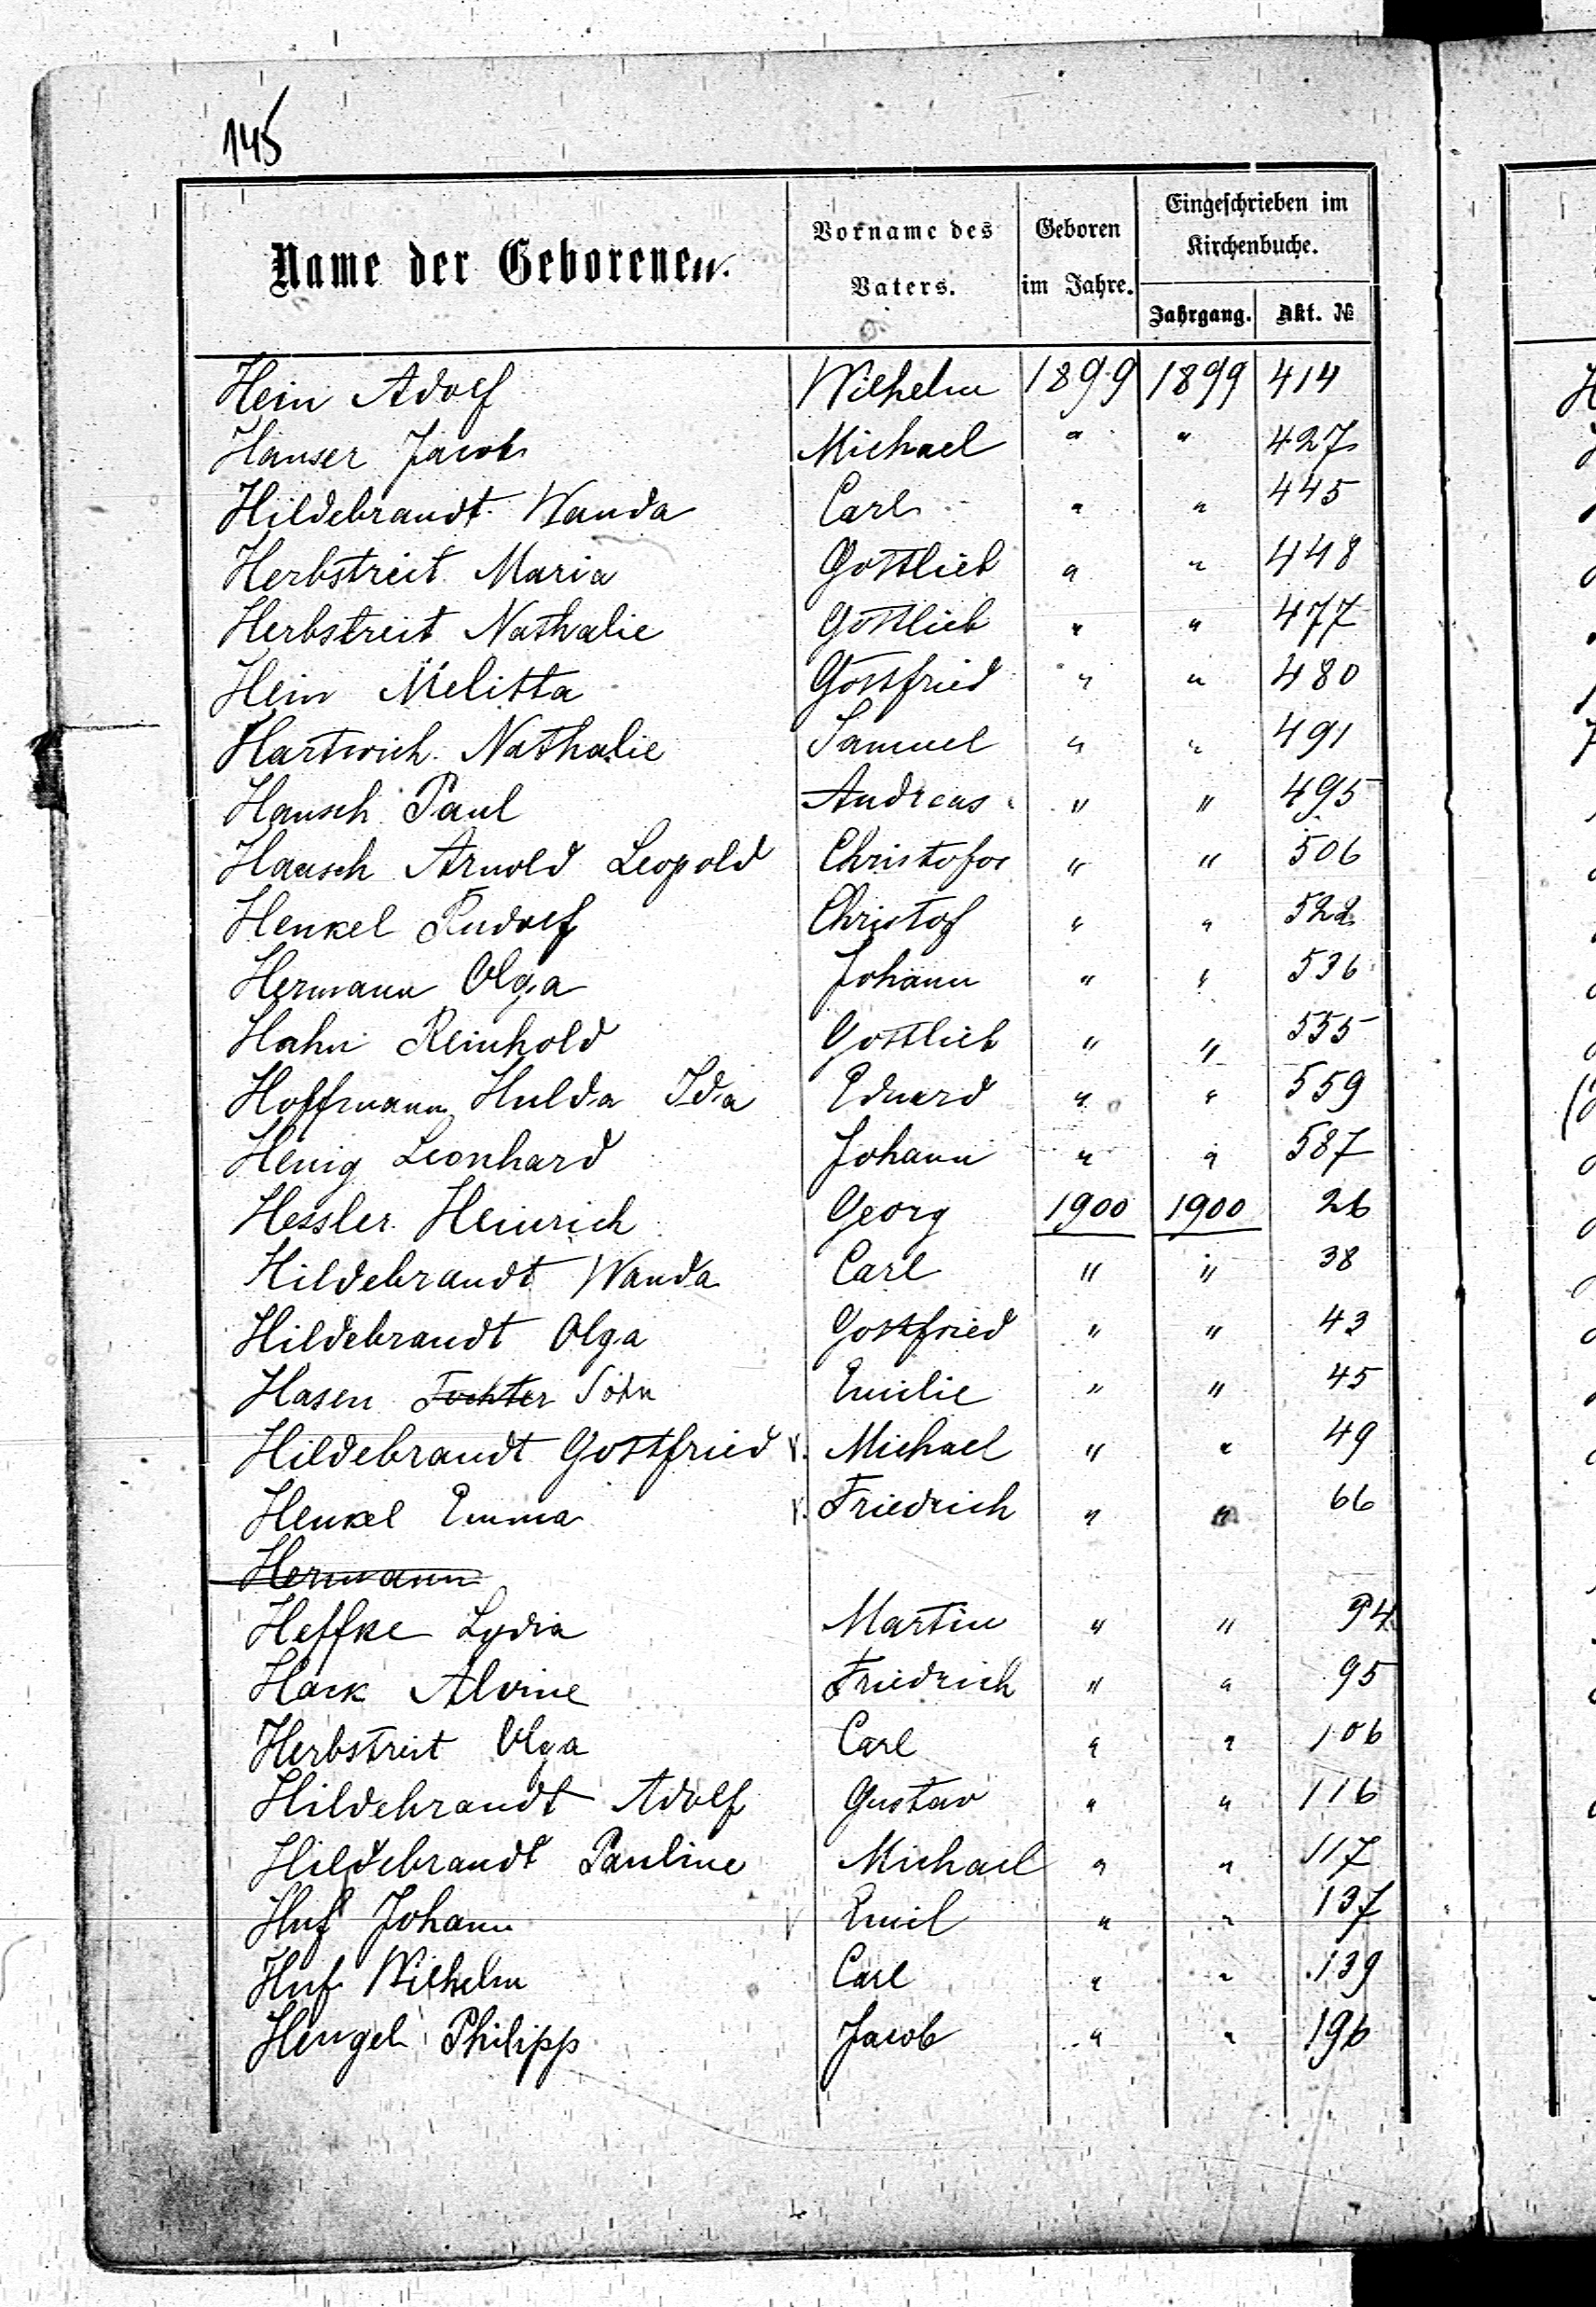 145
Name der Geborenen.
Vorname des Vaters.
Geboren im Jahre.
Eingeschrieben im Kirchenbuche.
Jahrgang. Akt. №
Hein Adolf Wilhelm 1899 1899 414
Hauser Jacob Michael " " 427
Hildebrandt Wanda Carl " " 445
Herbstreit Maria Gottlieb " " 448
Herbstreit Nathalie Gottlieb " " 477
Hein Melitta Gottfried " " 480
Hartwich Nathalie Samuel " " 491
Hausch Paul Andreas " " 495
Haasch Arnold Leopold Christofor " " 506
Henkel Rudolf Christof " " 522
Hermann Olga Johann " " 536
Hahn Reinhold Gottlieb " " 555
Hoffmann Hulda Ida Eduard " " 559
Henig Leonhard Johann " " 587
Hessler Heinrich Georg 1900 1900 26
Hildebrandt Wanda Carl " " 38
Hildebrandt Olga Gottfried " " 43
Hasen Tochter Sohn Emilie " " 45
Hildebrandt Gottfried v. Michael " " 49
Henkel Emma v. Friedrich " " 66
Hermann
Heffke Lydia Martin " " 94
Hack Alvine Friedrich " " 95
Herbstreit Olga Carl " " 106
Hildebrandt Adolf Gustav " " 116
Hildebrandt Pauline Michael " " 117
Huf Johann Emil " " 137
Huf Wilhelm Carl " " 139
Hengel Philipp Jacob " " 196